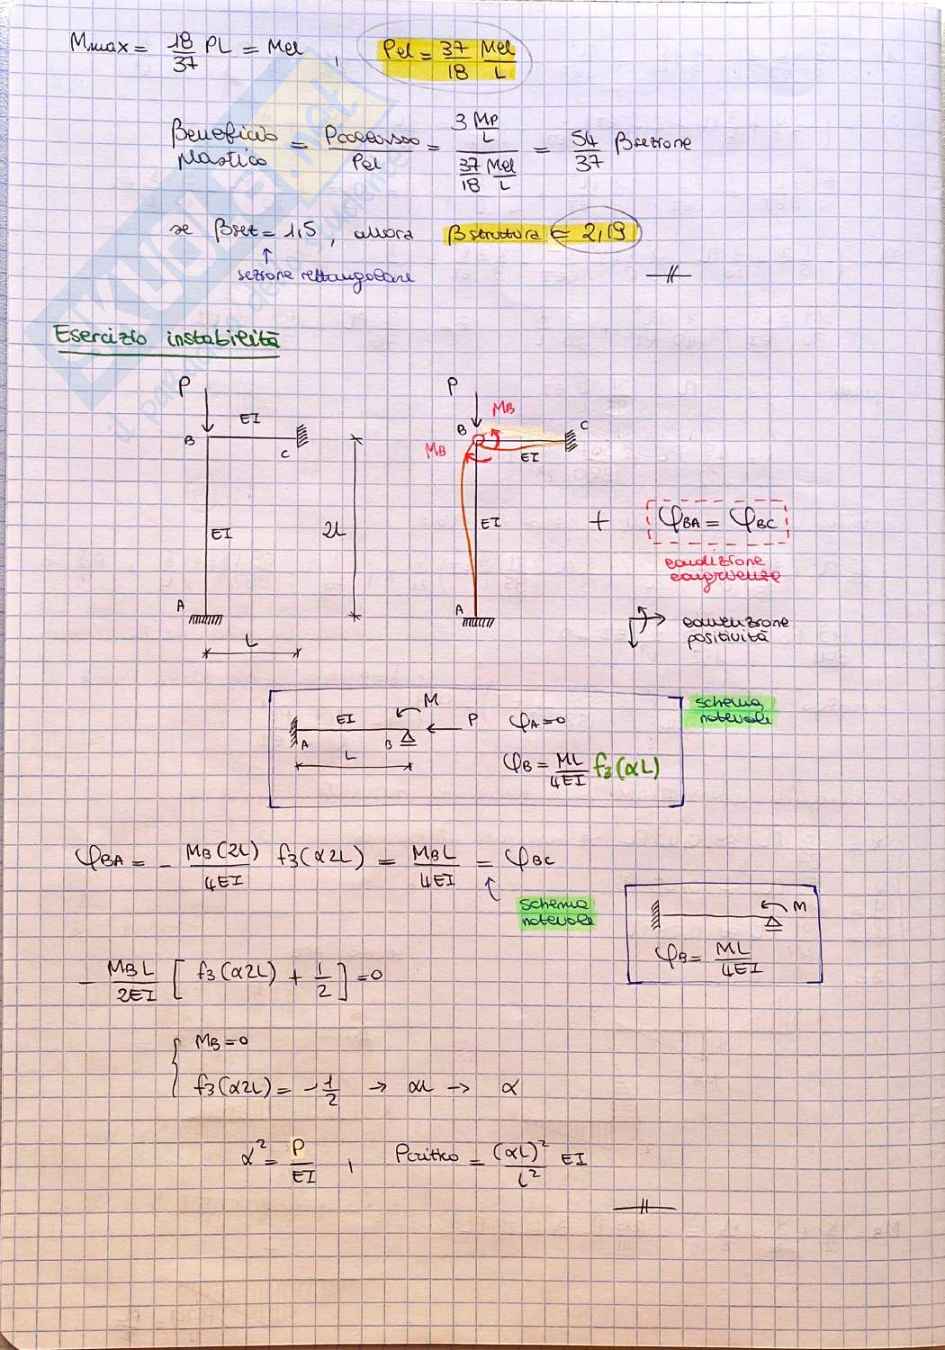 Mmax = 18/37 PL = Mel , Pel = 37/18 Mel/L
Beneficio plastico = Pcollasso/Pel = (3 Mp/L)/(37/18 Mel/L) = 54/37 βsezione
se βsez = 1,5 , allora βstruttura = 2,19
↑
sezione rettangolare
Esercizio instabilità
P
EI
B
C
EI
2L
A
L
P
MB
B
C
MB
EI
EI
A
+ φBA = φBC
condizione
congruenza
convenzione
positività
M
EI
P
φA=0
A
B
L
φB = ML/4EI f3(αL)
schema
notevole
φBA = - MB(2L)/4EI f3(α2L) = MBL/4EI = φBC
↑
schema
notevole
M
φB = ML/4EI
- MBL/2EI [ f3(α2L) + 1/2 ] = 0
MB = 0
f3(α2L) = -1/2 → αL → α
α² = P/EI , Pcritico = (αL)²/L² EI
skuola.net